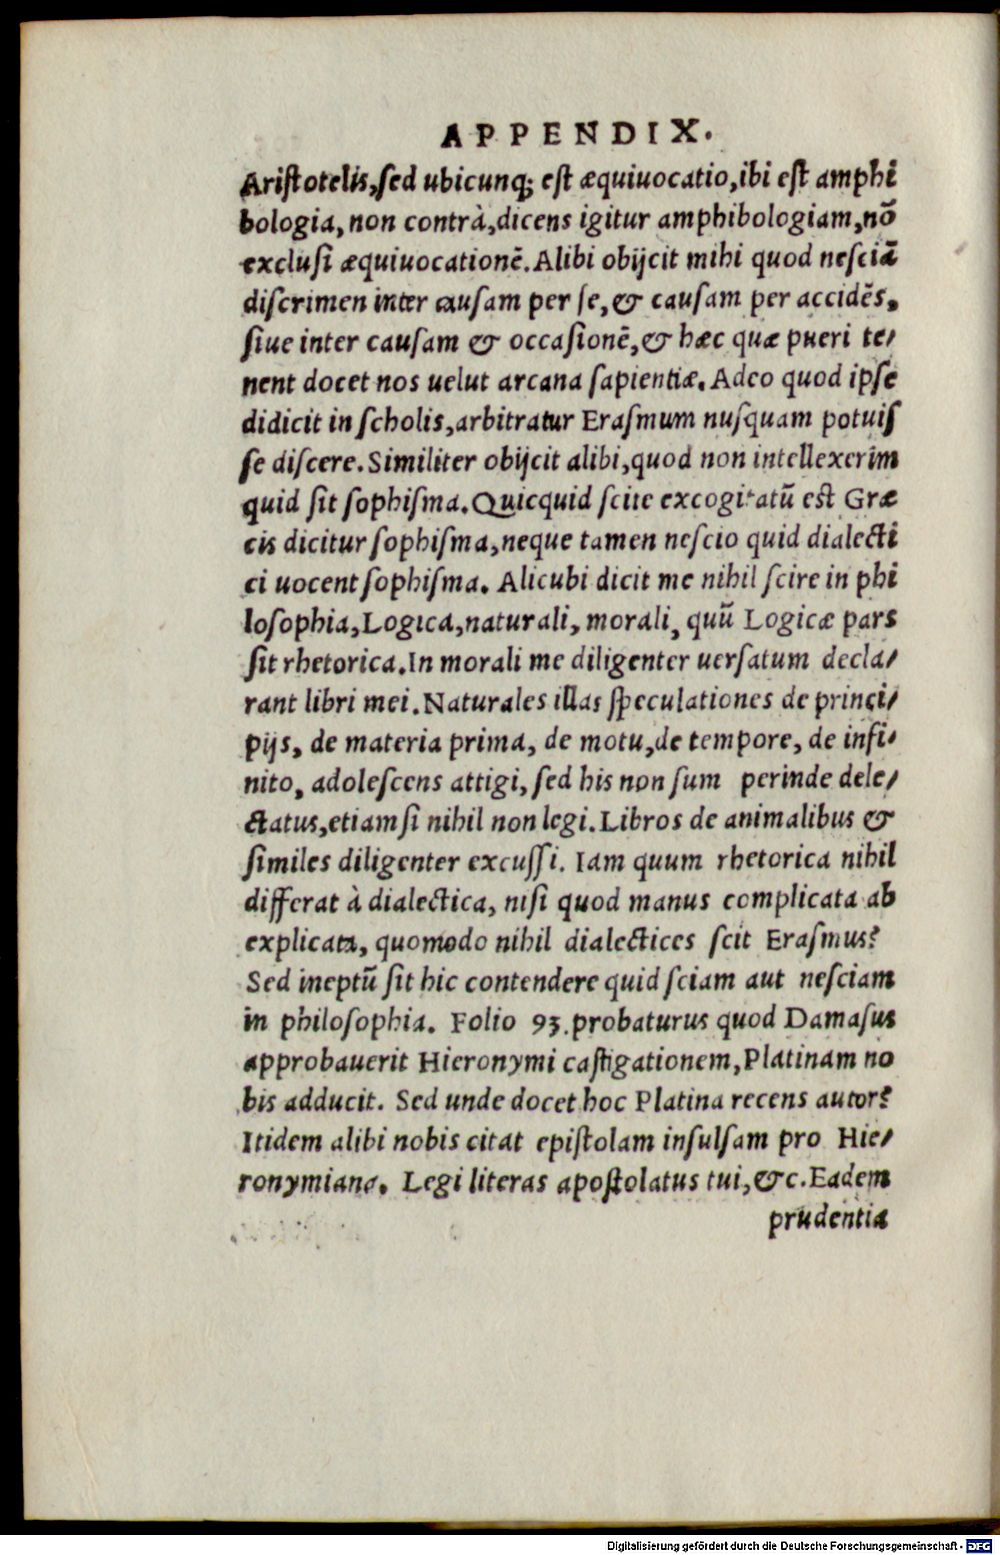 APPENDIX.
Ariſtotelis,ſed ubicunq; eſt æquiuocatio,ibi eſt amphi
bologia, non contrà,dicens igitur amphibologiam,nō
excluſi æquiuocationē. Alibi obijcit mihi quod neſciā
diſcrimen inter cauſam per ſe,& cauſam per accidēs,
ſiue inter cauſam & occaſionē,& hæc quæ pueri te/
nent docet nos uelut arcana ſapientiæ. Adeo quod ipſe
didicit in ſcholis,arbitratur Eraſmum nuſquam potuiſ
ſe diſcere. Similiter obijcit alibi,quod non intellexerim
quid ſit ſophiſma. Quicquid ſcite excogitatū eſt Græ
cis dicitur ſophiſma,neque tamen neſcio quid dialecti
ci uocent ſophiſma. Alicubi dicit me nihil ſcire in phi
loſophia,Logica,naturali, morali, quū Logicæ pars
ſit rhetorica. In morali me diligenter uerſatum decla/
rant libri mei. Naturales illas ſpeculationes de princi/
pijs, de materia prima, de motu,de tempore, de infi/
nito, adoleſcens attigi, ſed his non ſum perinde dele/
ctatus,etiamſi nihil non legi. Libros de animalibus &
ſimiles diligenter excuſſi. Iam quum rhetorica nihil
differat à dialectica, niſi quod manus complicata ab
explicata, quomodo nihil dialectices ſcit Eraſmus?
Sed ineptū ſit hic contendere quid ſciam aut neſciam
in philoſophia. Folio 93. probaturus quod Damaſus
approbauerit Hieronymi caſtigationem, Platinam no
bis adducit. Sed unde docet hoc Platina recens autor?
Itidem alibi nobis citat epiſtolam inſulſam pro Hie/
ronymiana. Legi literas apoſtolatus tui,&c. Eadem
prudentia
Digitalisierung gefördert durch die Deutsche Forschungsgemeinschaft - DFG